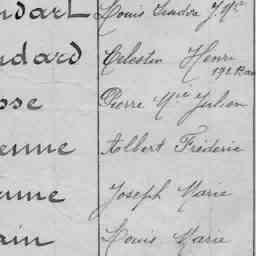 ndart Louis Isidore J. Me
ndard Célestin Henri
192 Bau
sse Pierre Me Julien
enne Albert Frédéric
enne Joseph Marie
ain Louis Marie